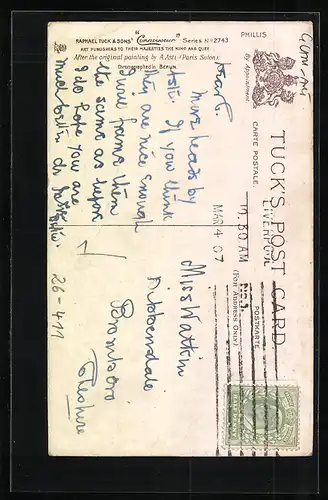 PHILLIS
RAPHAEL TUCK & SONS' "Connoisseur" Series No 2743
ART PUBLISHERS TO THEIR MAJESTIES THE KING AND QUEEN
After the original painting by A. Asti (Paris Salon).
Chromographed in Berlin.
By Appointment.
TUCK'S POST CARD
CARTE POSTALE.
POSTKARTE
(FOR ADDRESS ONLY).
LIVERPOOL
10.30 AM
MAR 4 07
More heads by
Asti. If you think
they are nice enough
I will frame them
the same as before
I do hope you are
much better
Miss Watkin
Dibbensdale
Bromboro
Cheshire
26-411